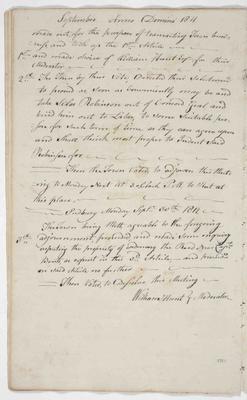 September Anno Domini 1814
made out for the purpose of transacting Town busi-
ness, and took up the 1st Article
1st and made choice of William Hunt Esqr for their
Moderator
2d The Town by their Vote Directed their Selectmen
to proceed as soon as Conveniently may be and
take Silas Robinson out of Concord Goal and
bind him out to Labor to some Suitable per-
son for such term of time, as they can agree upon
and Shall think most proper to
Robinson for
Then the Town Voted to adjourn this Meet-
ing to Monday Next at 3 Clock P.M. to Meet at
this place.
Sudbury Monday Sept. 1814
The Town being Mett agreable to the foregoing
adjournment, proceeded and made some inquiry
respecting the property of
as in the 3d Article and
on said Article no further
Then Voted, to Dissolve this Meeting
William Hunt Moderator